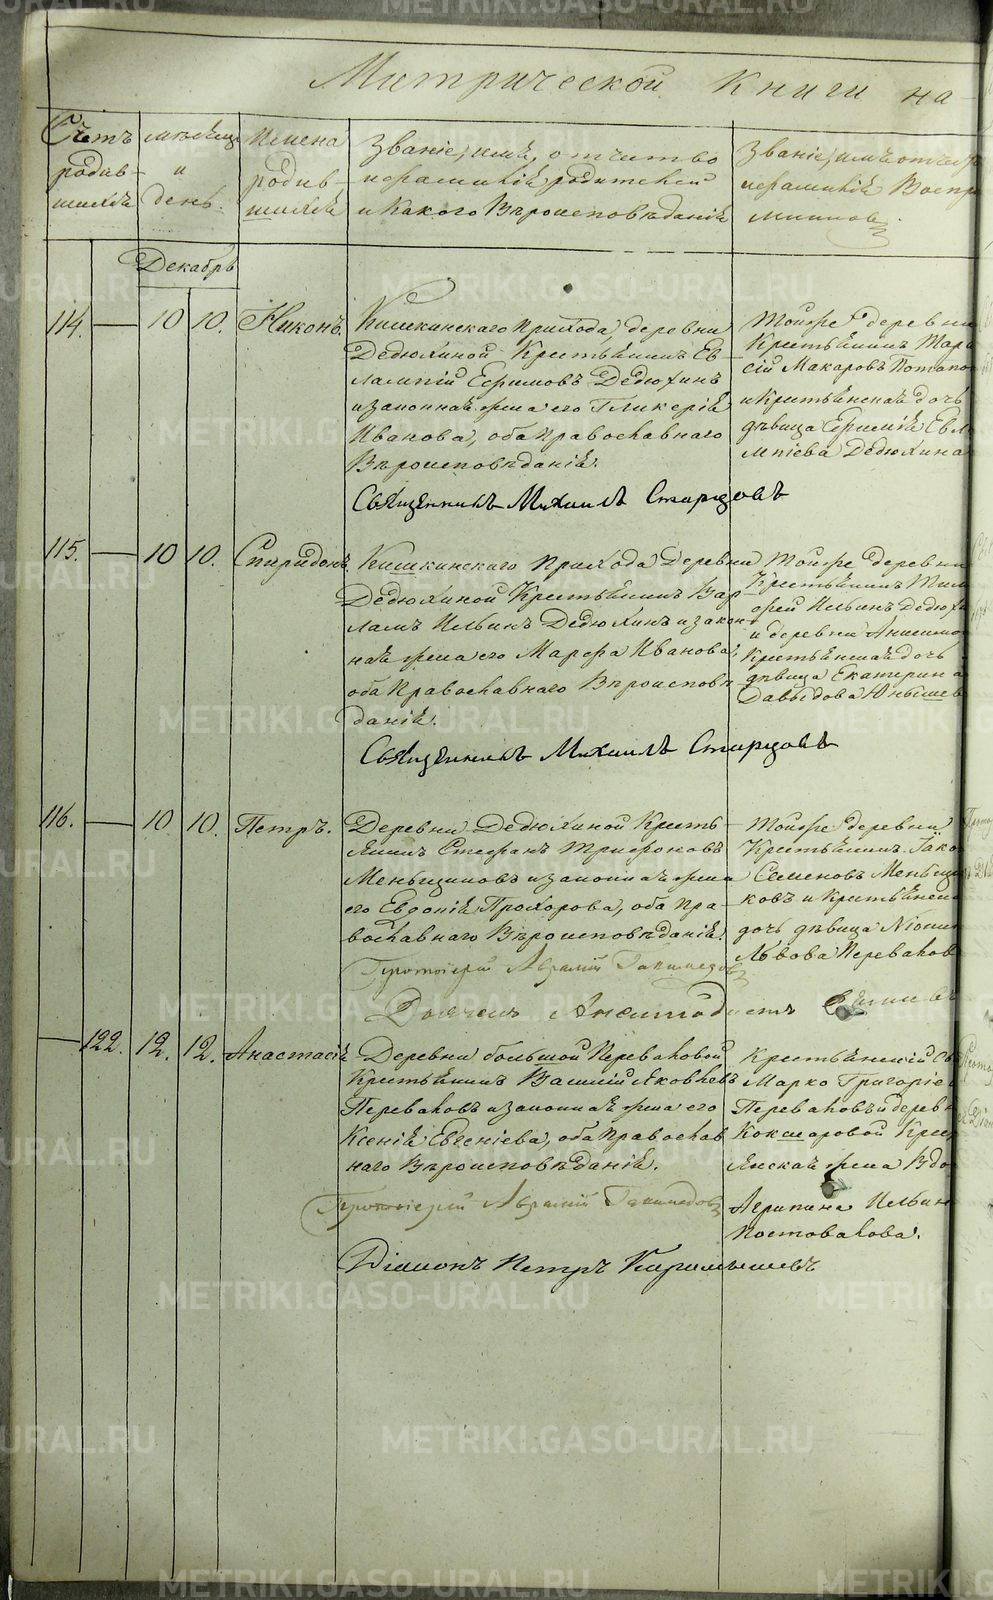 Метрической книги на
Счетъ
родив-
шихся
мѣсяцъ
и
день.
Имена
родив-
шихся
Званіе, имя, отчество
и фамилія родителей
и какого Вѣроисповѣданія
Званіе, имя отчест
и фамилія Воспр
мниковъ.
Декабрь
114. — 10 10. Никонъ.
Кишкинскаго Прихода, деревни
Дедюхиной Крестьянинъ Ев-
лампій Ефимовъ Дедюхинъ
и законная жена его Гликерія
Иванова, оба Православнаго
Вѣроисповѣданія.
Священникъ Михаилъ Старцовъ
Тойже деревни
Крестьянинъ Тара
сій Макаровъ Потапо
и Крестьянская дочь
дѣвица Ефимія Евла
мпіева Дедюхина
115. — 10 10. Спиридонъ.
Кишкинскаго Прихода Деревни
Дедюхиной Крестьянинъ Вар
ламъ Ильинъ Дедюхинъ и закон-
ная жена его Марфа Иванова,
оба Православнаго Вѣроисповѣ
данія.
Священникъ Михаилъ Старцовъ
Тойже деревни
Крестьянинъ Тим
офей Ильинъ Дедюхи
и деревни Анисимо
Крестьянская дочь
дѣвица Екатерина
Давыдова Янышев
116. — 10 10. Петръ.
Деревни Дедюхиной Кресть-
янинъ Стефанъ Трифоновъ
Меньщиковъ и законная жена
его Евдокія Прохорова, оба Пра-
вославнаго Вѣроисповѣданія.
Протоіерей Авраамій
Дьячекъ
Тойже деревни
Крестьянинъ Іако
Семеновъ Меньщи
ковъ и Крестьянска
дочь дѣвица
Львова Перевалов
— 122. 12. 12. Анастасія
Деревни большой Переваловой
Крестьянинъ Василій Яковлевъ
Переваловъ и законная жена его
Ксенія Евгеніева, оба Православ
наго Вѣроисповѣданія.
Протоіерей Авраамій
Діаконъ Петръ Карамышевъ
Крестьянскій
Марко Григоріев
Переваловъ и дерев
Кокшаровой Крес
янская жена Вдо
Агрипина Ильин
Постовалова.
METRIKI.GASO-URAL.RU